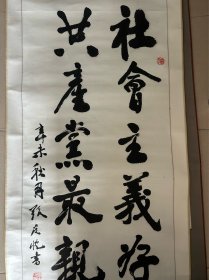 社會主義好
共產黨最親
辛未秋月
书